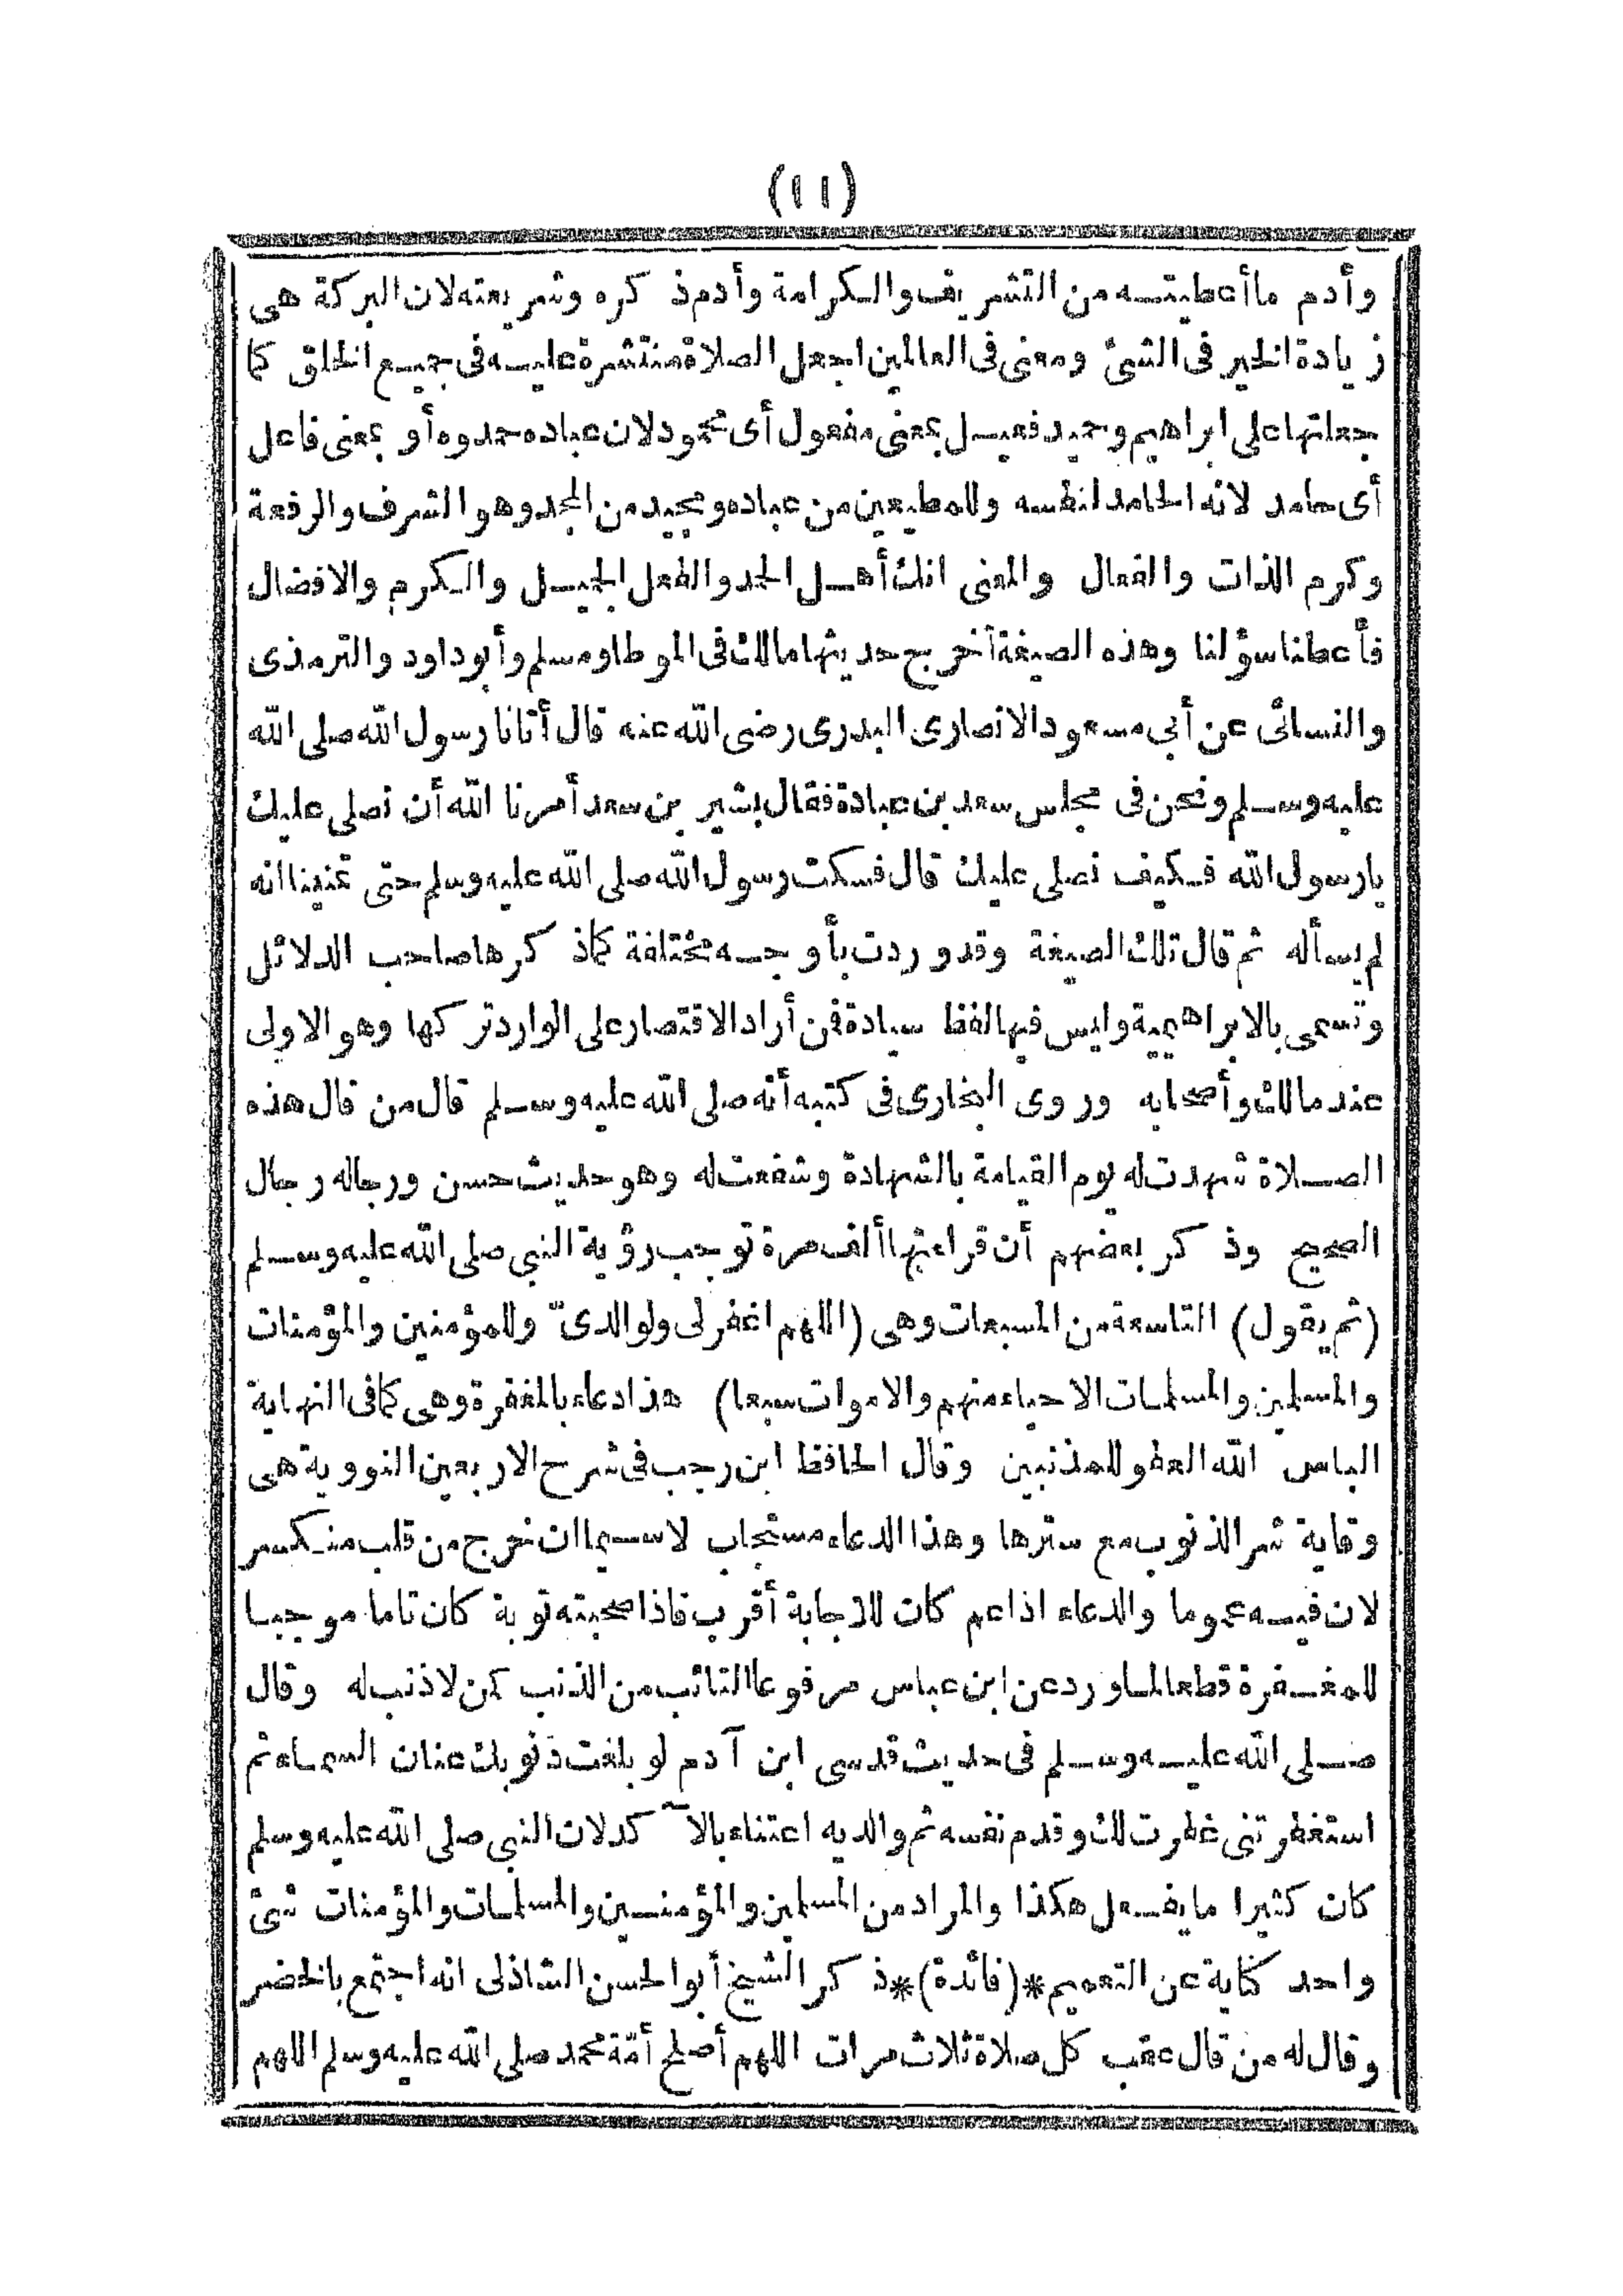 (١١)
وأدم ما أعطيته من التشريف والكرامة وأدم ذكره وشريعته لان البركة هى
زيادة الخير فى الشئ ومعنى فى العالمين اجعل الصلاة منتشرة عليه فى جميع الخلق كما
جعلتها على ابراهيم وحميد فعيل بمعنى مفعول أى محمود لان عباده حمدوه أو بمعنى فاعل
أى حامد لانه الحامد لنفسه وللمطيعين من عباده ومجيد من المجد وهو الشرف والرفعة
وكرم الذات والفعال والمعنى انك أهل الحمد والفعل الجميل والكرم والافضال
فأعطنا سؤلنا وهذه الصيغة أخرج حديثها مالك فى الموطا ومسلم وأبو داود والترمذى
والنسائى عن أبى مسعود الانصارى البدرى رضى الله عنه قال أتانا رسول الله صلى الله
عليه وسلم ونحن فى مجلس سعد بن عبادة فقال بشير بن سعد أمرنا الله أن نصلى عليك
يارسول الله فكيف نصلى عليك قال فسكت رسول الله صلى الله عليه وسلم حتى تمنينا انه
لم يسأله ثم قال تلك الصيغة وقد وردت بأوجه مختلفة كما ذكرها صاحب الدلائل
وتسمى بالابراهيمية وليس فيها لفظ سيادة فمن أراد الاقتصار على الوارد تركها وهو الاولى
عند مالك وأصحابه وروى البخارى فى كتبه أنه صلى الله عليه وسلم قال من قال هذه
الصلاة شهدت له يوم القيامة بالشهادة وشفعت له وهو حديث حسن ورجاله رجال
الصحيح وذكر بعضهم أن قراءتها ألف مرة توجب رؤية النبى صلى الله عليه وسلم
(ثم يقول) التاسعة من المسبعات وهى (اللهم اغفرلى ولوالدىّ وللمؤمنين والمؤمنات
والمسلمين والمسلمات الاحياء منهم والاموات سبعا) هذا دعاء بالمغفرة وهى كما فى النهاية
الباس الله العفو للمذنبين وقال الحافظ ابن رجب فى شرح الاربعين النووية هى
وقاية شر الذنوب مع سترها وهذا الدعاء مستجاب لاسيما ان خرج من قلب منكسر
لان فيه عموما والدعاء اذا عم كان للاجابة أقرب فاذا صحبته توبة كان تاما موجبا
للمغفرة قطعا لما ورد عن ابن عباس مرفوعا التائب من الذنب كمن لا ذنب له وقال
صلى الله عليه وسلم فى حديث قدسى ابن آدم لو بلغت ذنوبك عنان السماء ثم
استغفرتنى غفرت لك وقدم نفسه ثم والديه اعتناء بالآكد لان النبى صلى الله عليه وسلم
كان كثيرا ما يفعل هكذا والمراد من المسلمين والمؤمنين والمسلمات والمؤمنات شئ
واحد كناية عن التعميم*(فائدة)*ذكر الشيخ أبو الحسن الشاذلى انه اجتمع بالخضر
وقال له من قال عقب كل صلاة ثلاث مرات اللهم أصلح أمّة محمد صلى الله عليه وسلم اللهم